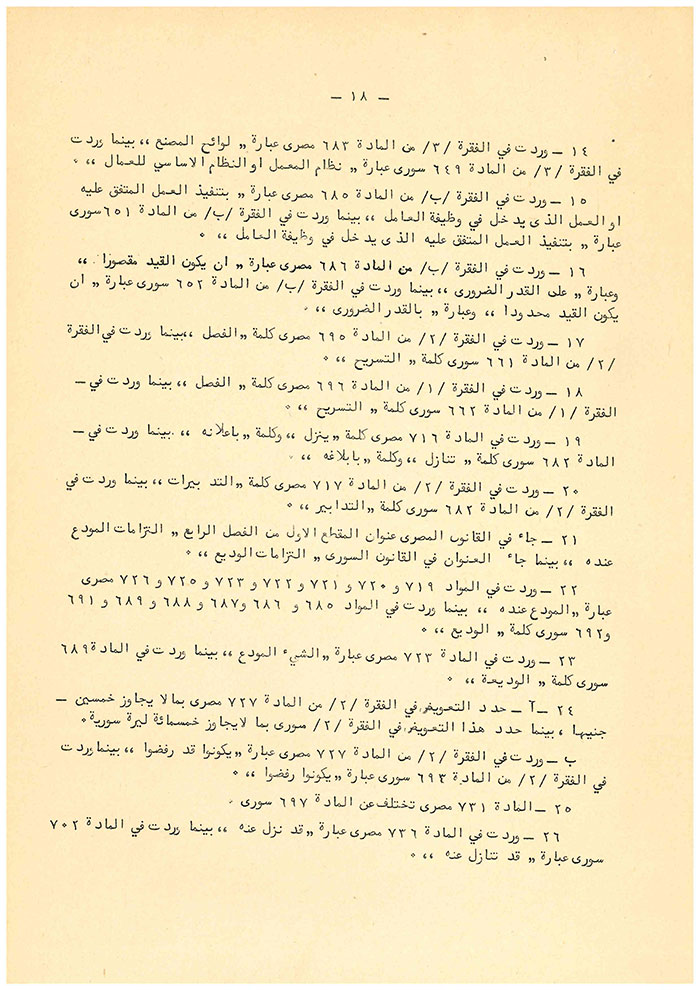 — ١٨ —
١٤ — وردت في الفقرة /٣/ من المادة ٦٨٣ مصرى عبارة „ لوائح المصنع ،، بينما وردت
في الفقرة /٣/ من المادة ٦٤٩ سورى عبارة „ نظام المعمل او النظام الاساسي للعمال ،، ٠
١٥ — وردت في الفقرة /ب/ من المادة ٦٨٥ مصرى عبارة „ بتنفيذ العمل المتفق عليه
او العمل الذى يدخل في وظيفة العامل ،، بينما وردت في الفقرة /ب/ من المادة ٦٥١ سورى
عبارة „ بتنفيذ العمل المتفق عليه الذى يدخل في وظيفة العامل ،، ٠
١٦ — وردت في الفقرة /ب/ من المادة ٦٨٦ مصرى عبارة „ ان يكون القيد مقصورا ،،
وعبارة „ على القدر الضرورى ،، بينما وردت في الفقرة /ب/ من المادة ٦٥٢ سورى عبارة „ ان
يكون القيد محدودا ،، وعبارة „ بالقدر الضرورى ،، ٠
١٧ — وردت في الفقرة /٢/ من المادة ٦٩٥ مصرى كلمة „ الفصل ،، بينما وردت في الفقرة
/٢/ من المادة ٦٦١ سورى كلمة „ التسريح ،، ٠
١٨ — وردت في الفقرة /١/ من المادة ٦٩٦ مصرى كلمة „ الفصل ،، بينما وردت في —
الفقرة /١/ من المادة ٦٦٢ سورى كلمة „ التسريح ،، ٠
١٩ — وردت في المادة ٧١٦ مصرى كلمة „ ينزل ،، وكلمة „ باعلانه ،، بينما وردت في —
المادة ٦٨٢ سورى كلمة „ تنازل ،، وكلمة „ بابلاغه ،، ٠
٢٠ — وردت في الفقرة /٢/ من المادة ٧١٧ مصرى كلمة „ التدبيرات ،، بينما وردت في
الفقرة /٢/ من المادة ٦٨٢ سورى كلمة „ التدابير ،، ٠
٢١ — جاء في القانون المصرى عنوان المقطع الاول من الفصل الرابع „ التزامات المودع
عنده ،، بينما جاء العنوان في القانون السورى „ التزامات الوديع ،، ٠
٢٢ — وردت في المواد ٧١٩ و ٧٢٠ و ٧٢١ و ٧٢٢ و ٧٢٣ و ٧٢٥ و ٧٢٦ مصرى
عبارة „ المودع عنده ،، بينما وردت في المواد ٦٨٥ و ٦٨٦ و٦٨٧ و ٦٨٨ و ٦٨٩ و ٦٩١
و٦٩٢ سورى كلمة „ الوديع ،، ٠
٢٣ — وردت في المادة ٧٢٣ مصرى عبارة „ الشيء المودع ،، بينما وردت في المادة ٦٨٩
سورى كلمة „ الوديعة ،، ٠
٢٤ — آ — حدد التعويض في الفقرة /٢/ من المادة ٧٢٧ مصرى بمالا يجاوز خمسين —
جنيها ، بينما حدد هذا التعويض في الفقرة /٢/ سورى بما لايجاوز خمسمائة ليرة سورية٠
ب — وردت في الفقرة /٢/ من المادة ٧٢٧ مصرى عبارة „ يكونوا قد رفضوا ،، بينما وردت
في الفقرة /٢/ من المادة ٦٩٣ سورى عبارة „ يكونوا رفضوا ،، ٠
٢٥ — المادة ٧٣١ مصرى تختلف عن المادة ٦٩٧ سورى ٠
٢٦ — وردت في المادة ٧٣٦ مصرى عبارة „ قد نزل عنه ،، بينما وردت في المادة ٧٠٢
سورى عبارة „ قد تنازل عنه ،، ٠